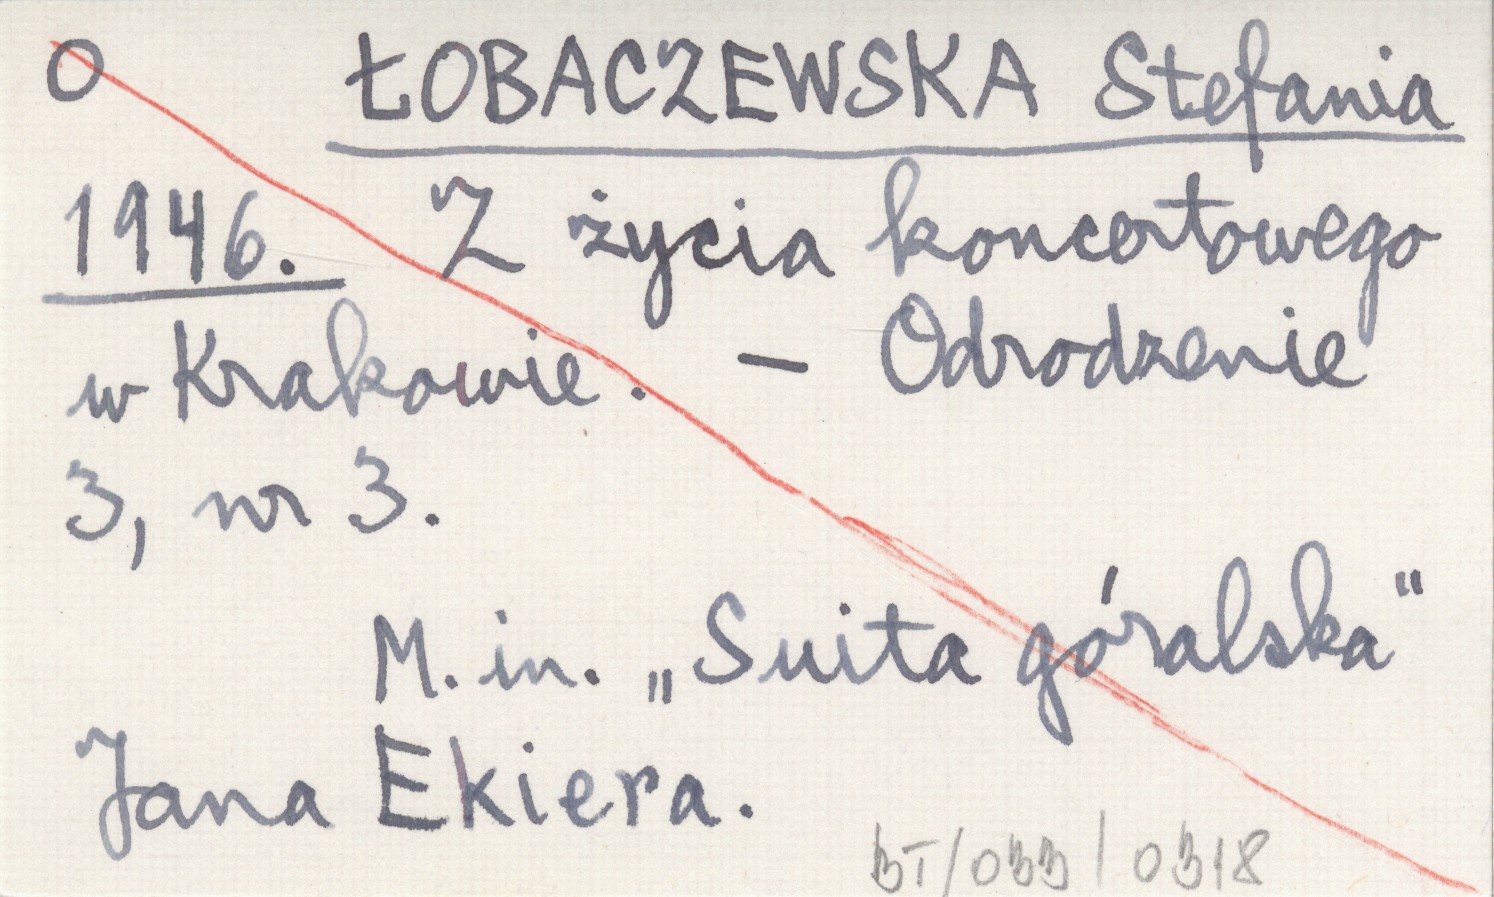 O ŁOBACZEWSKA Stefania
1946. Z życia koncertowego
w Krakowie. – Odrodzenie
3, nr 3.
M. in. „Suita góralska“
Jana Ekiera.
BT/033/0318